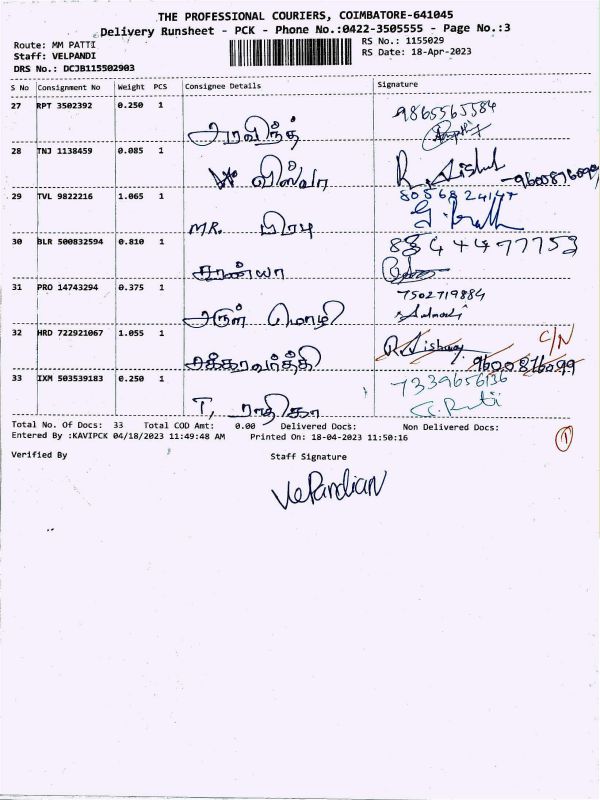 THE PROFESSIONAL COURIERS, COIMBATORE-641045
Delivery Runsheet - PCK - Phone No.:0422-3505555 - Page No.:3
Route: MM PATTI
Staff: VELPANDI
DRS No.: DCJB115502903
RS No.: 1155029
RS Date: 18-Apr-2023
S No Consignment No Weight PCS Consignee Details Signature
27 RPT 3502392 0.250 1 9865565584
அரவிந்த்
28 TNJ 1138459 0.085 1
விஸ்வா -9600876099
29 TVL 9822216 1.065 1 8056824147
MR. பிரபு
30 BLR 500832594 0.810 1
சரண்யா
31 PRO 14743294 0.375 1 7502719884
அருள் மொழி
32 HRD 722921067 1.055 1 C/N
சக்கரவர்த்தி 9600876099
33 IXM 503539183 0.250 1 7339656136
T, ராதிகா
Total No. Of Docs: 33 Total COD Amt: 0.00 Delivered Docs: Non Delivered Docs:
Entered By :KAVIPCK 04/18/2023 11:49:48 AM Printed On: 18-04-2023 11:50:16
1
Verified By Staff Signature
VelPandian